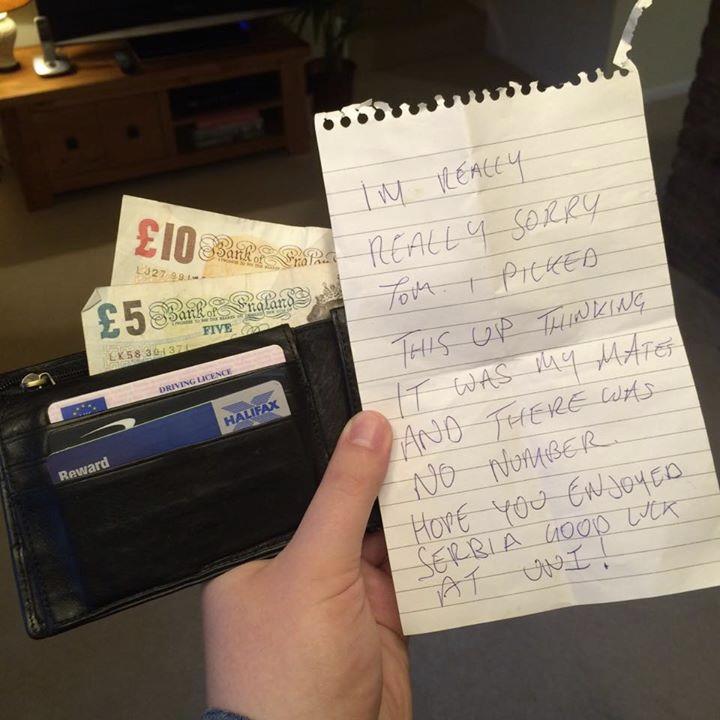 IM REALLY
REALLY SORRY
TOM. I PICKED
THIS UP THINKING
IT WAS MY MATES
AND THERE WAS
NO NUMBER.
HOPE YOU ENJOYED
SERBIA GOOD LUCK
AT UNI!
£10 Bank of England
£5 Bank of England
FIVE
DRIVING LICENCE
HALIFAX
Reward